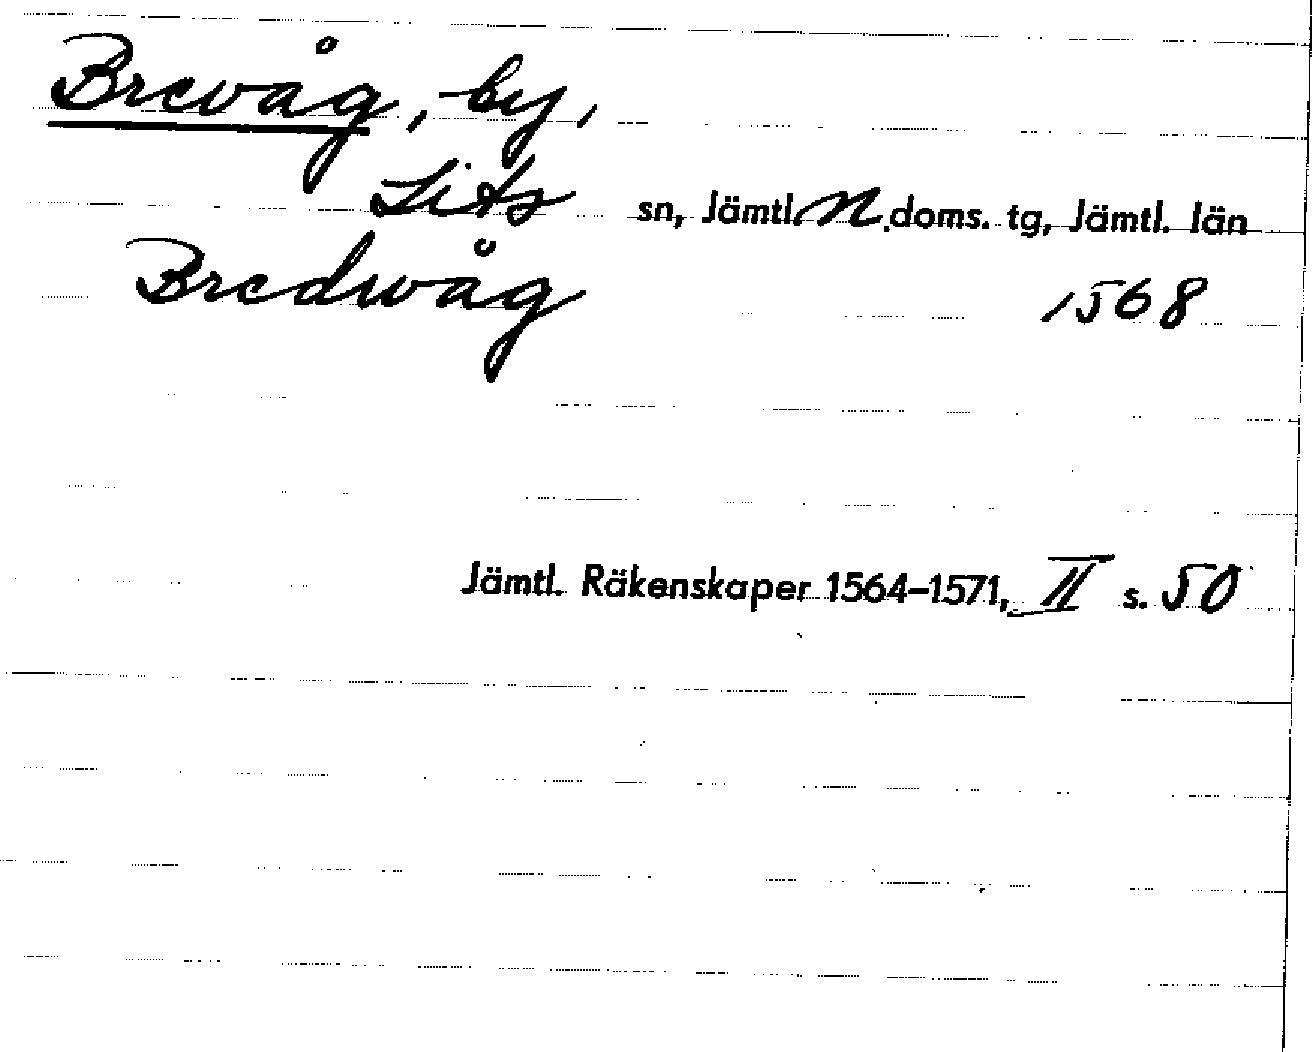 Brevåg, by,
Lits sn, Jämtl. N. doms. tg, Jämtl. län
Bredwåg 1568
Jämtl. Räkenskaper 1564–1571, II s. 50